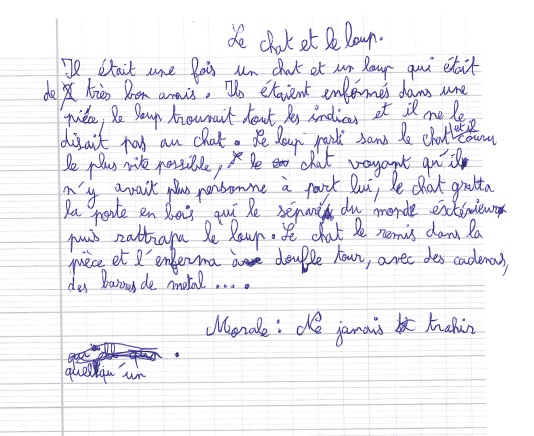 Le chat et le loup.
Il était une fois un chat et un loup qui était
de très bon amis. Ils étaient enfermés dans une
pièce, le loup trouvait tout les indices et il ne le
disait pas au chat. Le loup parti sans le chat et il couru
le plus vite possible, le chat voyant qu'il
n'y avait plus personne à part lui, le chat gratta
la porte en bois qui le séparé du monde éxtérieur
puis rattrapa le loup. Le chat le remis dans la
pièce et l'enferma à double tour, avec des cadenas,
des barres de metal ....
Morale : Ne jamais trahir
quelqu'un.